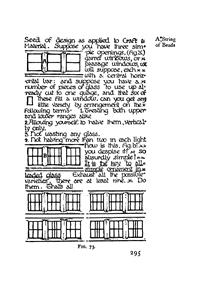 Seed of design as applied to Craft &
Material. Suppose you have three sim-
ple openings, (fig. 73)
garret windows, or
passage windows, we
will suppose, each
with a central horiz-
ontal bar: and suppose you have a
number of pieces of glass to use up al-
ready cut to one gauge, and that six of
these fill a window, can you get any
little variety by arrangement on the
following terms: 1. Treating both upper
and lower ranges alike
2. Allowing yourself to halve them, vertical-
ly only.
3. Not wasting any glass.
4. Not halving more than two in each light
How is this, fig. B?
you despise it? so
absurdly simple!
It is the key to all
simple ornament in
leaded glass. Exhaust all the possible
varieties, there are at least nine. Do
them. Thats all
A String
of Beads
A
B
Fig. 73.
295